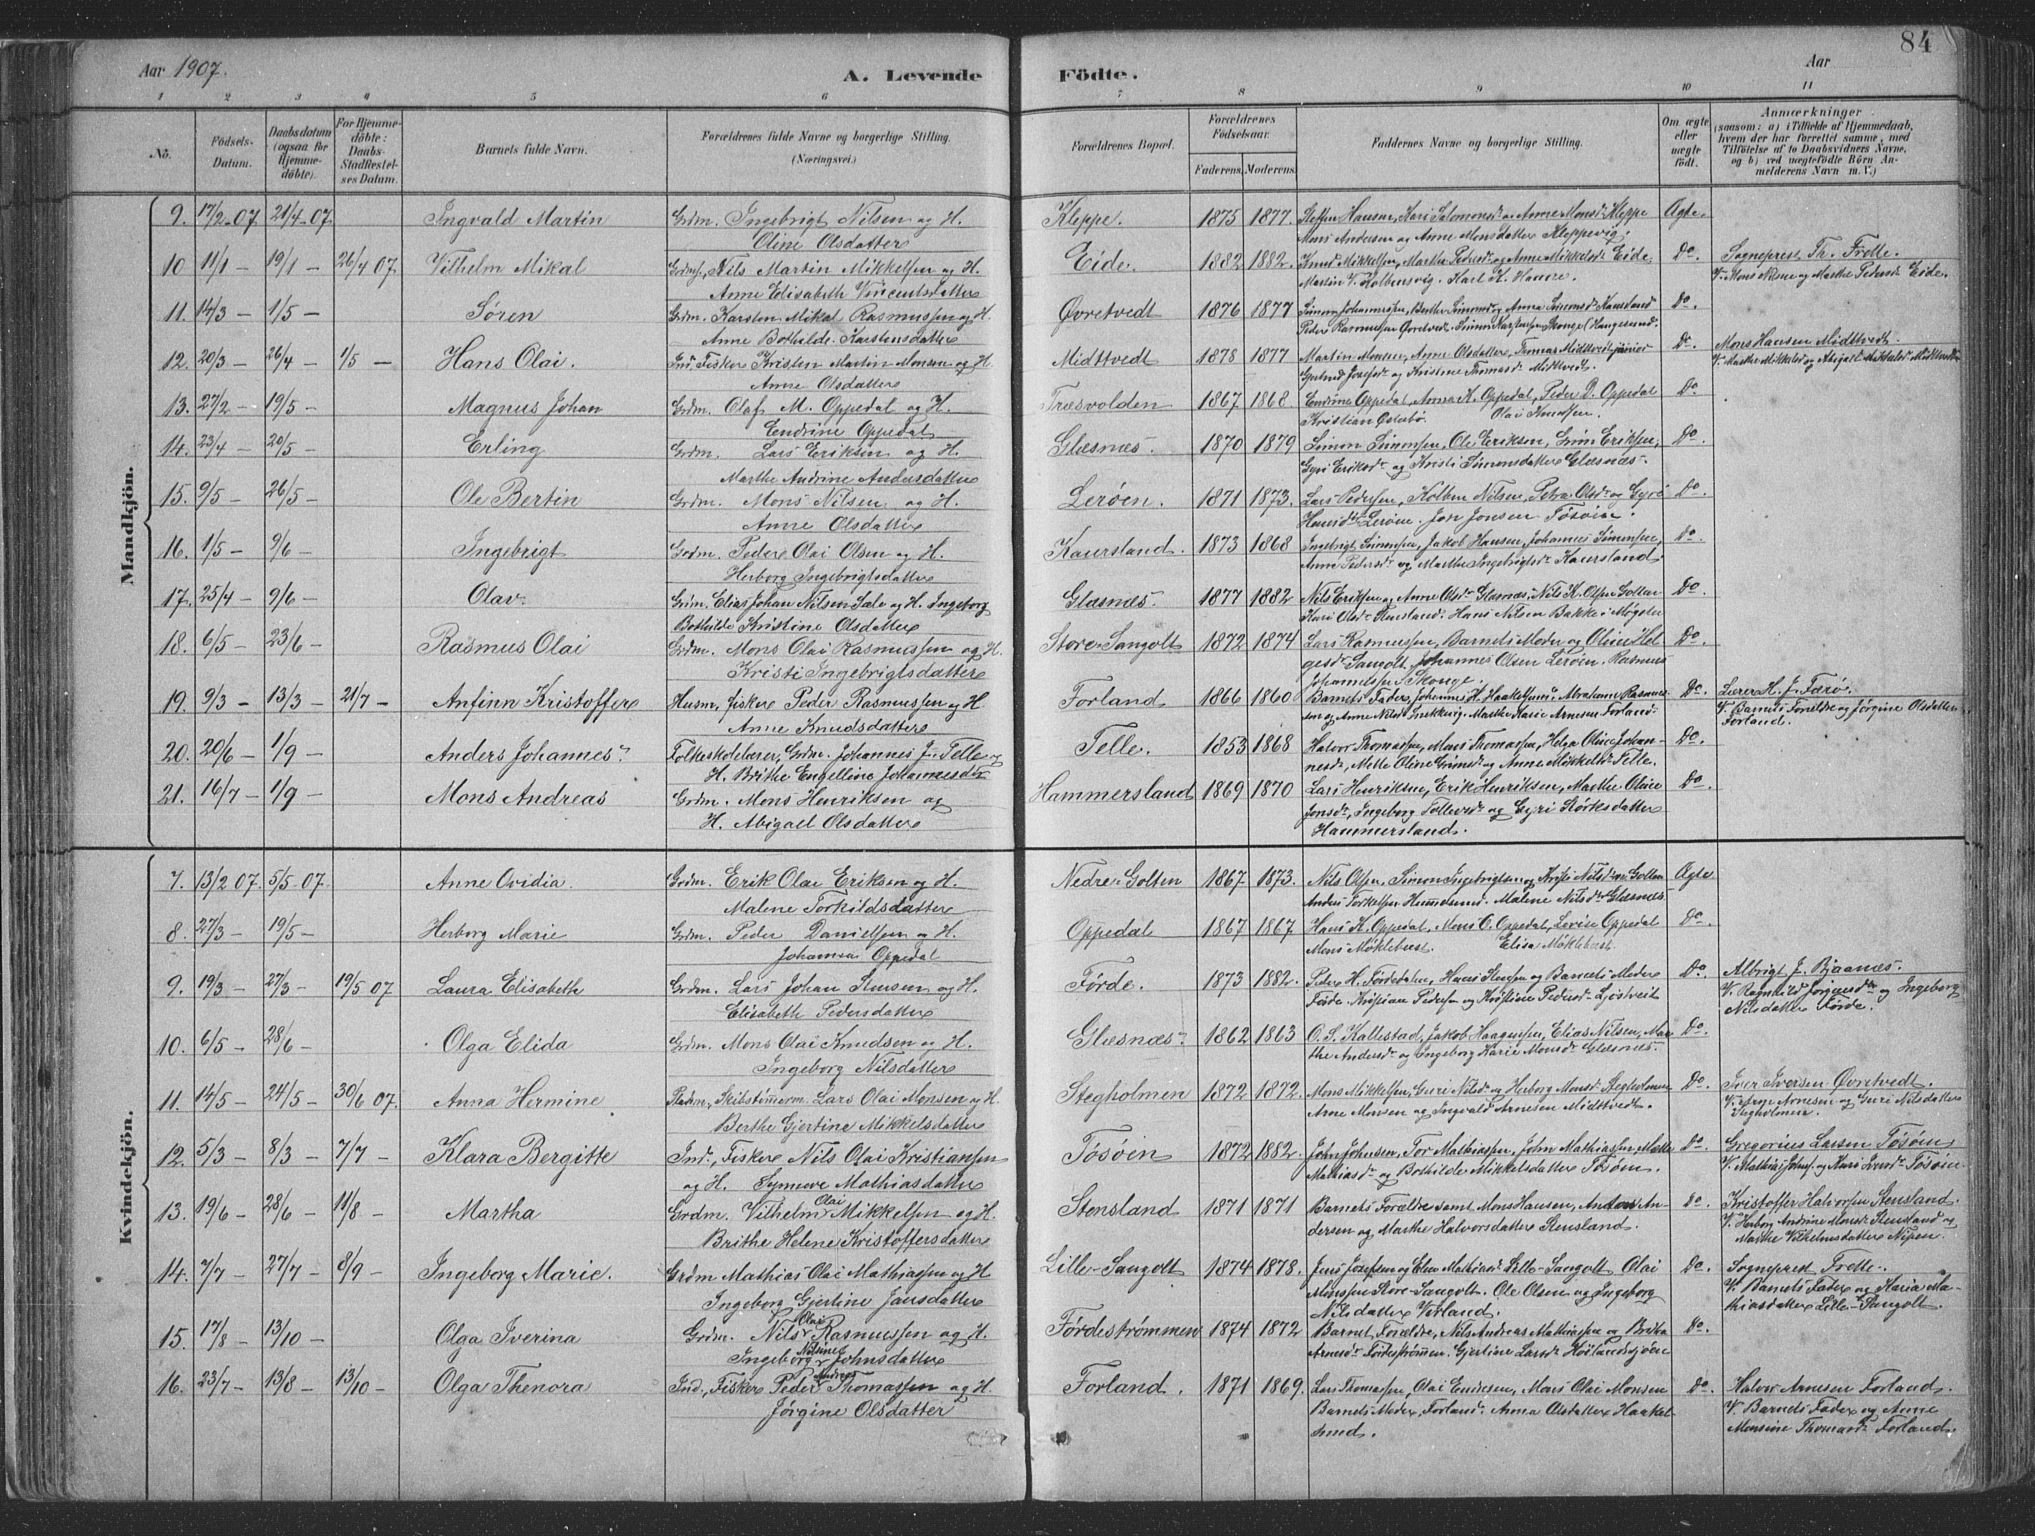 84
Aar 1907.
A. Levende Födte.
Aar
1 2 3 4 5 6 7 8 9 10 11
No.
Födsels-Datum.
Daabsdatum (ogsaa for Hjemmedöbte).
For Hjemmedöbte: Daabs-Stadfæstelses Datum.
Barnets fulde Navn.
Forældrenes fulde Navne og borgerlige Stilling. (Næringsvei.)
Forældrenes Bopæl.
Forældrenes Födselsaar.
Faderens. Moderens.
Faddernes Navne og borgerlige Stilling.
Om ægte eller uægte födt.
Anmærkninger (saasom: a) i Tilfælde af Hjemmedaab, hvem der har forrettet samme, med Tilföielse af to Daabsvidners Navne, og b) ved uægtefödte Börn Anmelderens Navn m. V.)
Mandkjön.
9. 17/2-07. 21/4-07. Ingvald Martin Grdm. Ingebrigt Nilsen og H. Kleppe. 1875 1877. Steffen Hansen, Kari Salomonsd. og Anne Monsd. Kleppe Ægte.
Oline Olsdatter Mons Andersen og Anne Monsdatter Kleppevig.
10 11/1 - 19/1 - 26/4 07. Vilhelm Mikal Nils Martin Mikkelsen og H. Eide. 1882 1882. Knud Mikkelsen, Martha Pedersd. og Anne Mikkelsd. Eide. Do. Sogneprest Th. Frette.
Anne Elisabeth Vincentsdatter Martin V. Kolbensvig. Karl K. V. Mons Nilsen og Marthe Pedersd. Eide.
11. 14/3 - 1/5 - Søren Grdm. Karsten Mikal Rasmussen og H. Øvretvedt 1876 1877 Simon Johannessen, Berthe Simonsd. og Anna Do
Anne Bothilde Karstensdatter Peder Rasmussen Øvretvedt.
12. 20/3 - 26/4 - 1/5 - Hans Olai. Ind. Fisker Kristen Martin Monsen og H. Midttvedt 1878 1877 Martin Monsen, Anne Olsdatter, Thomas Midttvedt junior Do. Mons Hansen Midttvedt.
Anne Olsdatter Gjertrud Josefsd. og Kristine Thomasd. Midttvedt. V. Marthe Mikkelsd. og Abigael Mikkelsd. Midttvedt
13. 27/2 - 19/5 - Magnus Johan Grdm. Olaf M. Oppedal og H. Træsvolden 1867 1868 Endrine Oppedal, Anna K. Oppedal, Peder D. Oppedal Do
Endrine Oppedal Kristian Østebø. Olai Knudsen.
14. 23/4 - 20/5 - Erling Grdm. Lars Eriksen og H. Glæsnæs. 1870 1879 Simon Simonsen, Ole Eriksen, Grim Eriksen, Do.
Marthe Andrine Andersdatter Gyri Eriksd. og Kristi Simonsdatter Glæsnæs.
15. 9/5 - 26/5 - Ole Bertin Grdm. Mons Nilsen og H. Lerøen. 1871 1873. Lars Pedersen, Kolben Nilsen, Petra Olsd. og Gyri Do.
Anne Olsdatter Hansd. Lerøen. Jon Jonsen Tösöien.
16. 1/5 - 9/6 - Ingebrigt Grdm. Peder Olai Olsen og H. Kaursland. 1873 1868 Ingebrigt Simonsen, Jakob Hansen, Johannes Simonsen, Do.
Herborg Ingebrigtsdatter Anne Pedersd. og Marthe Ingebrigtsd. Kaursland
17. 25/4 - 9/6 - Olav. Grdm. Elias Johan Nilsen Sale og H. Ingeborg Glæsnæs. 1877 1882 Nils Eriksen og Anne Olsd. Glæsnæs, Nils K. Olsen Golten Do.
Bothilde Kristine Olsdatter Kari Olsd. Hans Nilsen Bakke i Møgster
18. 6/5 - 23/6 - Rasmus Olai Grdm. Mons Olai Rasmussen og H. Store-Sangolt 1872 1874 Lars Rasmussen, Barnets Moder og Oline Hel- Do.
Kristi Ingebrigtsdatter gesd. Sangolt, Johannes Olsen Lerøen. Rasmus
Johannessen Skoge.
19. 9/3 - 13/3 - 21/7 - Anfinn Kristoffer Husm, fisker Peder Rasmussen og H Forland 1866 1860 Barnets Fader, Johannes H. Haakelsund, Abraham Rasmus- Do. Lærer H. J. Færø.
Anne Knudsdatter sen og Anne Nilsd. Snekkevig. Marthe Karie Arnesen Forland. V. Barnets Forældre og Jørgine Olsdatter
Forland.
20. 20/6 - 1/9 - Anders Johannes. Folkeskolelærer, Grdm. Johannes J. Telle og Telle. 1853 1868 Halvor Thomassen, Mons Thomassen, Helga Oline Johan- Do.
H. Brithe Engelline Johannesdtr nesd., Mette Oline Grimsd. og Anne Mikkelsd. Telle.
21. 16/7 - 1/9 - Mons Andreas Grdm. Mons Henriksen og Hammersland 1869 1870 Lars Henriksen, Erik Henriksen, Marthe Oline Do.
H. Abigael Olsdatter Jonsd., Ingeborg Tollevsd. og Gyri Størksdatter
Hammersland.
Kvindekjön.
7. 13/2 07. 5/5 07. Anne Ovidia. Grdm. Erik Olai Eriksen og H. Nedre-Golten 1867 1873. Nils Olsen, Simon Ingebrigtsen og Kristi Nilsd. Golten Ægte
Malene Torkildsdatter Anders Torkelsen. Malene Nilsd. Glæsnæs
8. 27/3 - 19/5 - Herborg Marie Grdm. Peder Danielsen og H. Oppedal 1867 1867 Hans K. Oppedal, Mons O. Oppedal, Lovise Oppedal Do.
Johanna Oppedal Mons Møklebust. Elisa Møklebust.
9. 19/3 - 27/3 - 19/5 07 Laura Elisabeth Grdm. Lars Johan Stensen og H. Förde. 1873 1882. Peder H. Fördedalen, Hans Stensen og Barnets Moder Do. Albrigt J. Bjaanæs.
Elisabeth Pedersdatter Förde. Kristian Pedersen og Kristine Pedersd. V. Ragnhild Jørginesd. og Ingeborg
Nilsdatter Förde.
10. 6/5 - 28/6 - Olga Elida Grdm. Mons Olai Knudsen og H. Glæsnæs. 1862 1863 O. S. Kallestad, Jakob Haagensen, Elias Nilsen, Mar- Do.
Ingeborg Nilsdatter the Andersd. og Ingeborg Karie Monsd. Glæsnæs.
11. 14/5 - 24/5 - 30/6 07. Anna Hermine Pladsm., Skibstømrerm. Lars Olai Monsen og H. Stegholmen 1872 1872. Mons Mikkelsen, Guri Nilsd. og Herborg Monsd. Stegholmen Do. Iver Iversen Øvretvedt.
Berthe Gjertine Mikkelsdatter Arne Monsen og Ingvald Arnesen Midttvedt. V. Arnesen og Guri Nilsdatter
Stegholmen.
12. 5/3 - 8/3 - 7/7 - Klara Bergitte Ind., Fisker Nils Olai Kristiansen Tösöien 1872 1882. John Johnsen, Tor Mathiassen, John Mathiassen, Mette Do Gregorius Larsen Tösöien
og H. Synneve Mathiasdatter Mathiasd. og Bothilde Mikkelsdatter Tösöien. V. Mathias Johns. og Kari Tösöien.
13. 19/6 - 28/6 - 11/8 - Martha Grdm. Vilhelm Olai Mikkelsen og H. Stensland 1871 1871 Barnets Forældre samt Mons Hansen, Anton An- Do. Kristoffer Halvorsen Stensland.
Brithe Helene Kristoffersdatter dersen og Marthe Halvorsdatter Stensland. V. Herborg Andrine Monsd. Stensland og
Marthe Vilhelmsdatter Nipen.
14. 7/7 - 27/7 - 8/9 - Ingeborg Marie. Grdm Mathias Olai Mathiassen og H Lille-Sangolt 1874 1878. Jens Josefsen og Elen Mathiasd. Lille-Sangolt. Olai Do. Sogneprest Frette.
Ingeborg Gjertine Jansdatter Monsen Store-Sangolt. Ole Olsen og Ingeborg V. Barnets Fader og Maria Ma-
Nilsdatter Vorland. thiasdatter Lille-Sangolt.
15. 17/8 - 13/10 - Olga Iverina Grdm. Nils Olai Rasmussen og H. Fördestrømmen 1874 1872 Barnets Forældre, Nils Andreas Mathiassen og Brita Do.
Ingeborg Nilsine Johnsdatter Arnesd. Fördestrømmen. Gjertine Larsd.
16. 23/7 - 13/8 - 13/10 - Olga Thenora Ind., Fisker Peder Andreas Thomassen og H. Forland. 1871 1869. Lars Thomassen, Olai Endresen, Mons Olai Monsen Do. Halvor Arnesen Forland.
Jørgine Olsdatter Barnets Moder, Forland. Anna Olsdatter Haakel- V. Barnets Fader og Anne
sund. Monsine Thomasd. Forland.